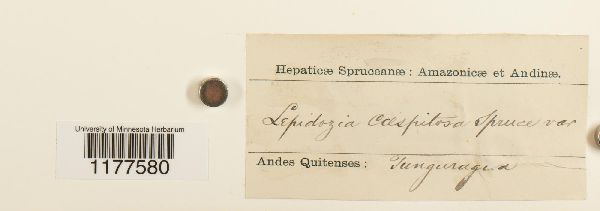 University of Minnesota Herbarium
1177580
Hepaticæ Spruceanæ: Amazonicæ et Andinæ.
Lepidozia cæspitosa Spruce var
Andes Quitenses: Tunguragua